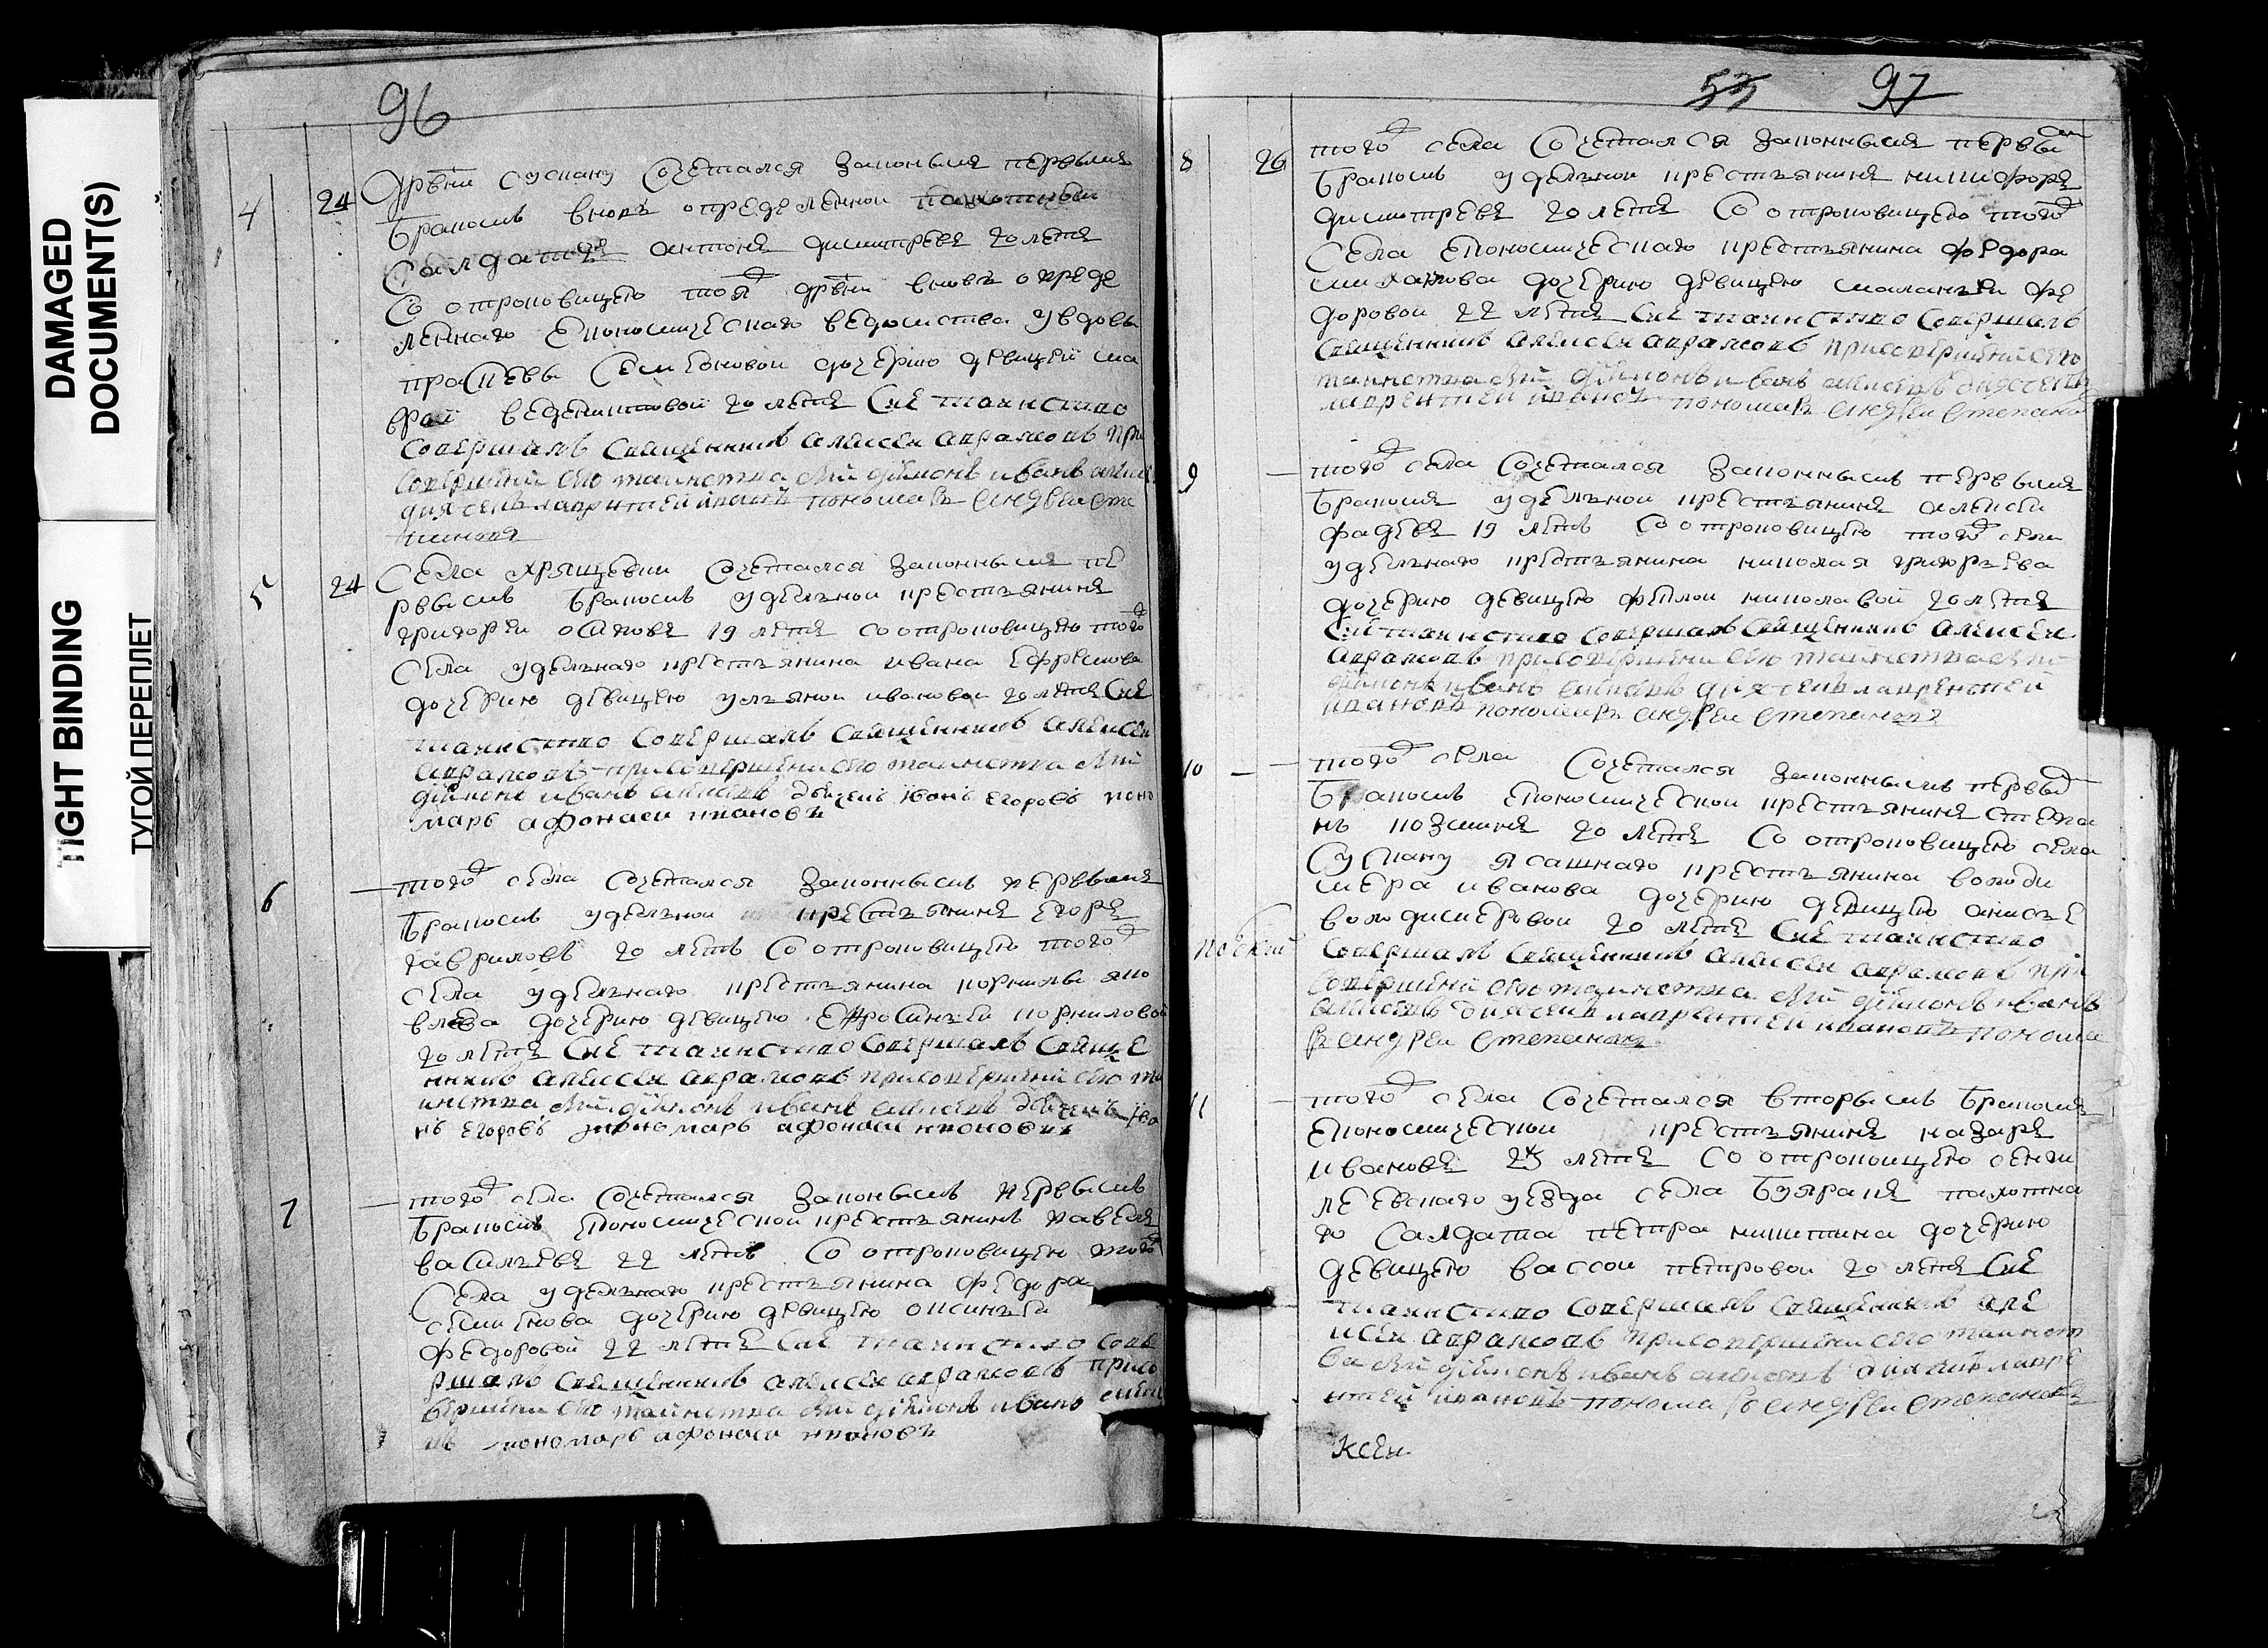 DAMAGED
DOCUMENT(S)
TIGHT BINDING
ТУГОЙ ПЕРЕПЛЕТ
96
4 24 Дрвни сускану сочетался законымъ первымъ
бракомъ вновь определенной пахотныи
салдатъ антонъ димитревъ 20 летъ
со отроковицею тоя дрвни вновь опреде
леннаго економическаго ведомства у вдовы
праск­евы семеновой дочерию девицеи ма
врои 20 летъ сие таинство
совершалъ священникъ алексеи аврамовъ при
совершени сего таинства были диаконъ иванъ
дьячекъ лаврентеи ивановъ пономарь андреи сте
пановъ
5 24 Села хрящевки сочетался законнымъ пе
рвымъ бракомъ уделной крестьянинъ
григореи осиповъ 19 летъ со отроковицею того
села уделнаго крестьянина ивана ефремова
дочерию девицею ульяной ивановой 20 летъ сие
таинство совершалъ священникъ алексеи
аврамовъ при совершени сего таинства были
диаконъ иванъ дьячекъ иванъ егоровъ поно
марь афонаси ивановъ
6 — того села сочетался законнымъ первымъ
бракомъ уделной крестьянинъ егоръ
гавриловъ 20 летъ со отроковицею того
села уделнаго крестьянина корнилы яко
влева дочерию девицею ефросиньей корниловой
20 летъ сие таинство совершалъ свяще
нникъ алексеи аврамовъ при совершени сего та
инства были диаконъ иванъ дьячекъ ива
нъ егоровъ пономарь афонаси ивановъ
7 — того села сочетался законымъ первымъ
бракомъ економической крестьянинъ павелъ
василъевъ 22 летъ со отроковицею того
села уделнаго крестьянина федора
семенова дочерию девицею аксиньеи
федоровой 22 летъ сие таинство сове
ршалъ священникъ алексеи аврамовъ при со
вершени сего таинства были диаконъ иванъ
пономарь афонаси ивановъ
53 97
8 26 того села сочетался законнымъ первым
бракомъ уделной крестьянинъ никифоръ
димитревъ 20 летъ со отроковицею того
села економическаго крестьянина федора
дочерию девицею маланьеи фе
доровой 22 летъ сие таинство совершалъ
священникъ алексеи аврамовъ при совершени сего
таинства были диаконъ иванъ дьячекъ
лаврентеи ивановъ пономарь андреи степановъ
9 — того села сочетался законнымъ первымъ
бракомъ уделной крестьянинъ алексеи
фадеевъ 19 летъ со отроковицею того села
уделнаго крестьянина николая григорьева
дочерию девицею феклой николавой 20 летъ
сие таинство совершалъ священникъ алексеи
аврамовъ при совершени сего таинства были
диаконъ иванъ дьячекъ лаврентеи
ивановъ пономарь андреи степановъ
10 — — того села сочетался законнымъ первы
бракомъ економической крестьянинъ степа
нъ козминъ 20 летъ со отроковицею села
сускану ясашнаго крестьянина володи
мера иванова дочерию девицею анисье
володимеровой 20 летъ сие таинство
совершалъ священникъ алексеи аврамовъ при
совершени сего таинства были диаконъ иванъ
дьячекъ лаврентеи ивановъ понома
рь андреи степановъ
11 — того села сочетался вторымъ бракомъ
економической крестьянинъ назаръ
ивановъ 25 летъ со отроковицею сенги
леевскаго уезда села буяракъ пахотна
го салдата петра никитина дочерию
девицею вассои петровой 20 летъ сие
таинство совершалъ священникъ але
ксеи аврамовъ при совершени сего таинст
ва были диаконъ иванъ дьячекъ лавре
нтеи ивановъ пономарь андреи степановъ
ксеи